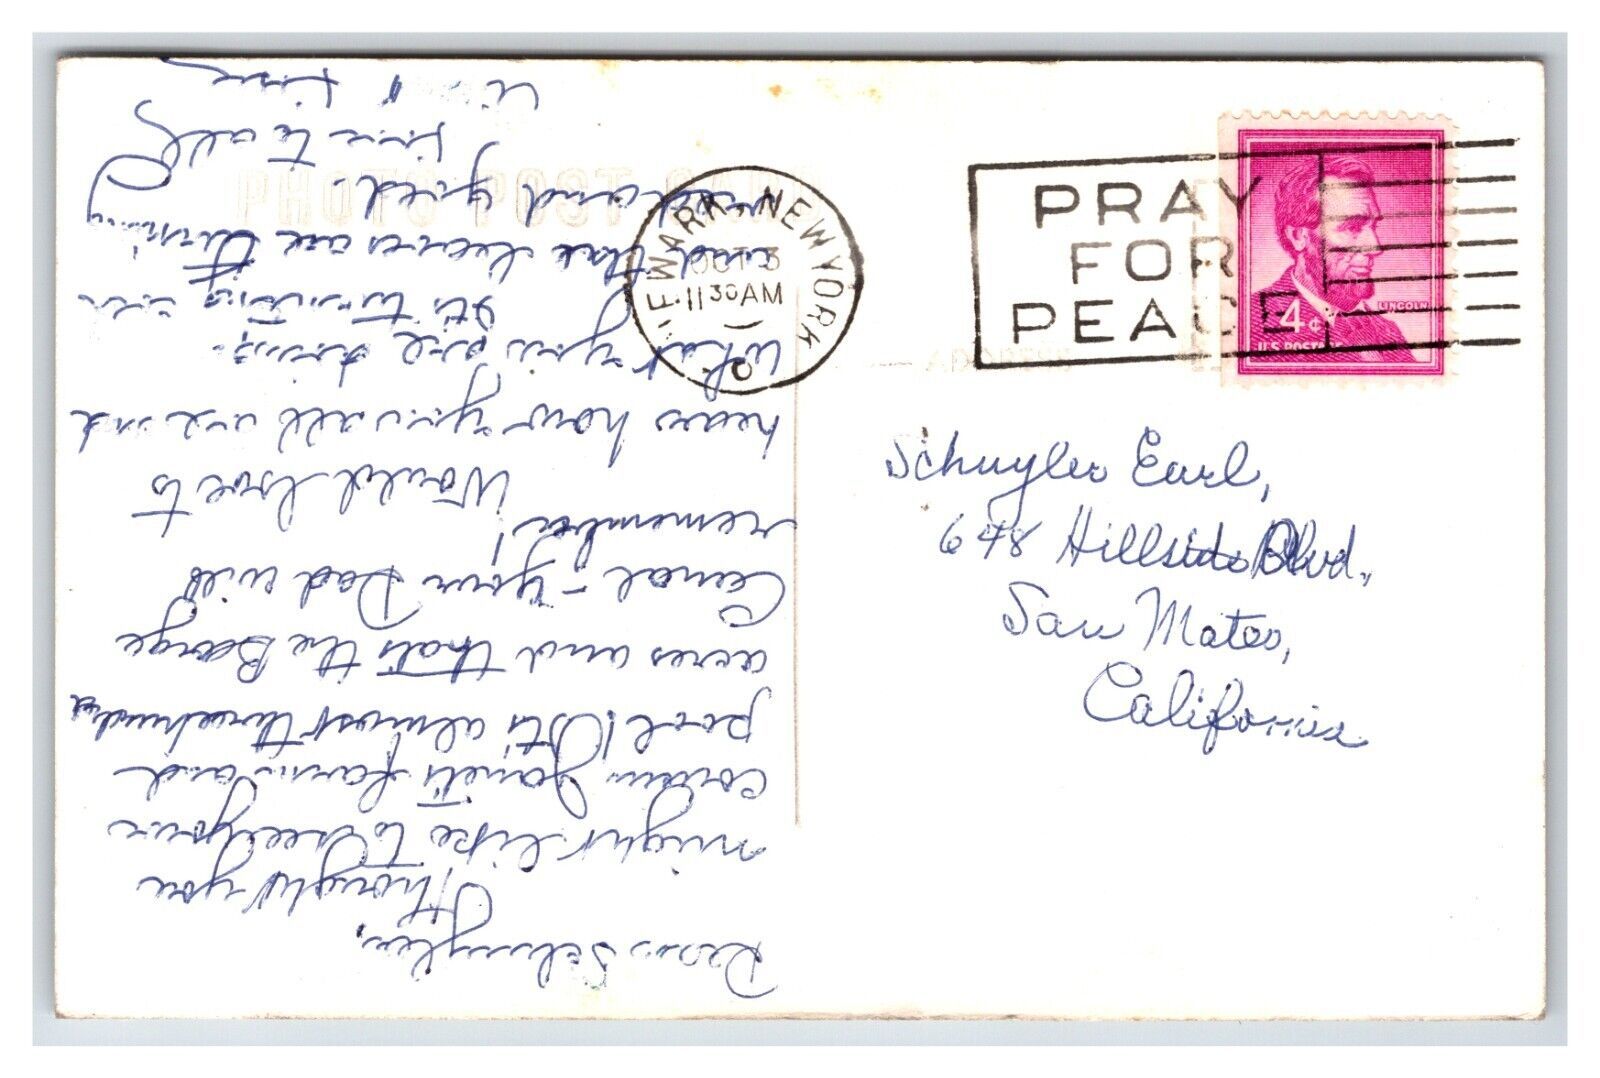 Dear Schuyler,
Thought you
might like to see your
cousin Janet's farm and
pool! It's almost three hundred
acres and that's the Barge
Canal - your Dad will
remember!
Would love to
hear how you all are and
what you are doing.
It's turning
and the leaves are turning
red and gold.
to all
PHOTO POST CARD
NEWARK, NEW YORK
OCT 3
11 30 AM
PRAY
FOR
PEACE
LINCOLN
4¢
U.S. POSTAGE
ADDRESS
Schuyler Earl,
648 Hillside Blvd.,
San Mateo,
California